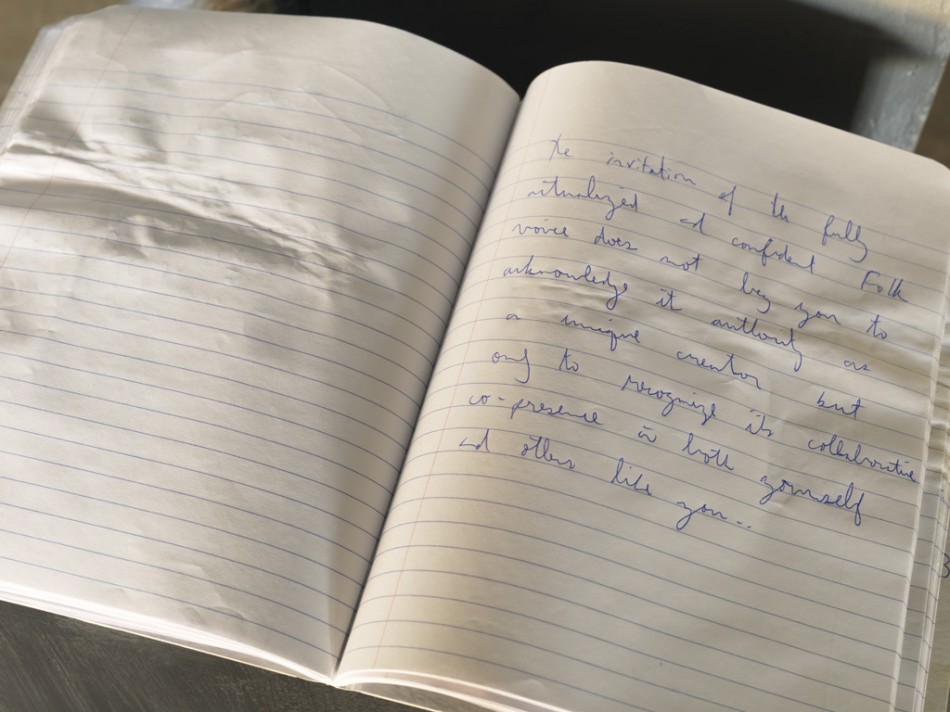 The invitation of the fully
actualized and confident Folk
voice does not beg you to
acknowledge it authority as
a unique creator but
only to recognize its collaborative
co-presence in both yourself
and others like you..